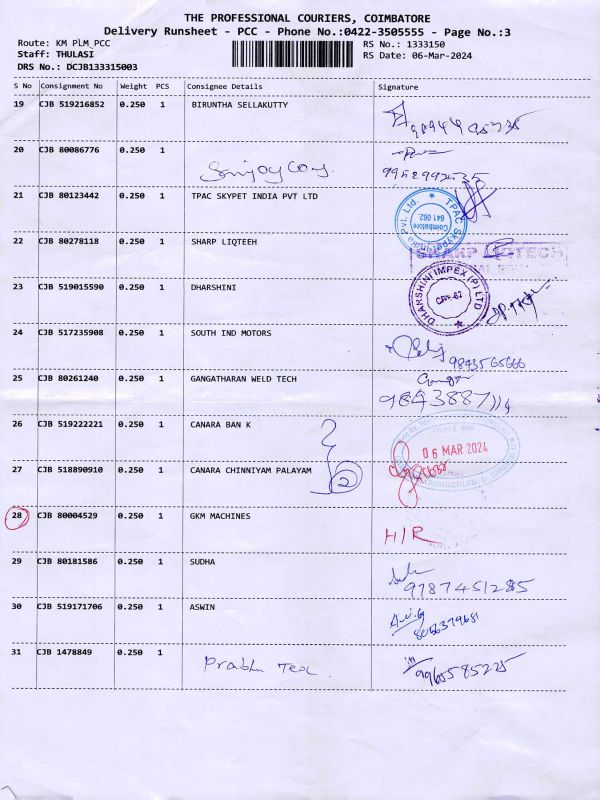 THE PROFESSIONAL COURIERS, COIMBATORE
Delivery Runsheet - PCC - Phone No.:0422-3505555 - Page No.:3
Route: KM PLM_PCC
RS No.: 1333150
Staff: THULASI
RS Date: 06-Mar-2024
DRS No.: DCJB133315003
S No Consignment No Weight PCS Consignee Details Signature
19 CJB 519216852 0.250 1 BIRUNTHA SELLAKUTTY
20 CJB 80086776 0.250 1
21 CJB 80123442 0.250 1 TPAC SKYPET INDIA PVT LTD
TPAC Skypet India Pvt. Ltd. Coimbatore 641 062.
22 CJB 80278118 0.250 1 SHARP LIQTEEH
SHARP LIQTECH
23 CJB 519015590 0.250 1 DHARSHINI
DHARSHINI IMPEX (P) LTD
24 CJB 517235908 0.250 1 SOUTH IND MOTORS
9843565666
25 CJB 80261240 0.250 1 GANGATHARAN WELD TECH
26 CJB 519222221 0.250 1 CANARA BAN K
06 MAR 2024
27 CJB 518890910 0.250 1 CANARA CHINNIYAM PALAYAM 2
28 CJB 80004529 0.250 1 GKM MACHINES H/R
29 CJB 80181586 0.250 1 SUDHA
9787451285
30 CJB 519171706 0.250 1 ASWIN
8056379681
31 CJB 1478849 0.250 1 Prabhu Tex
9965585225